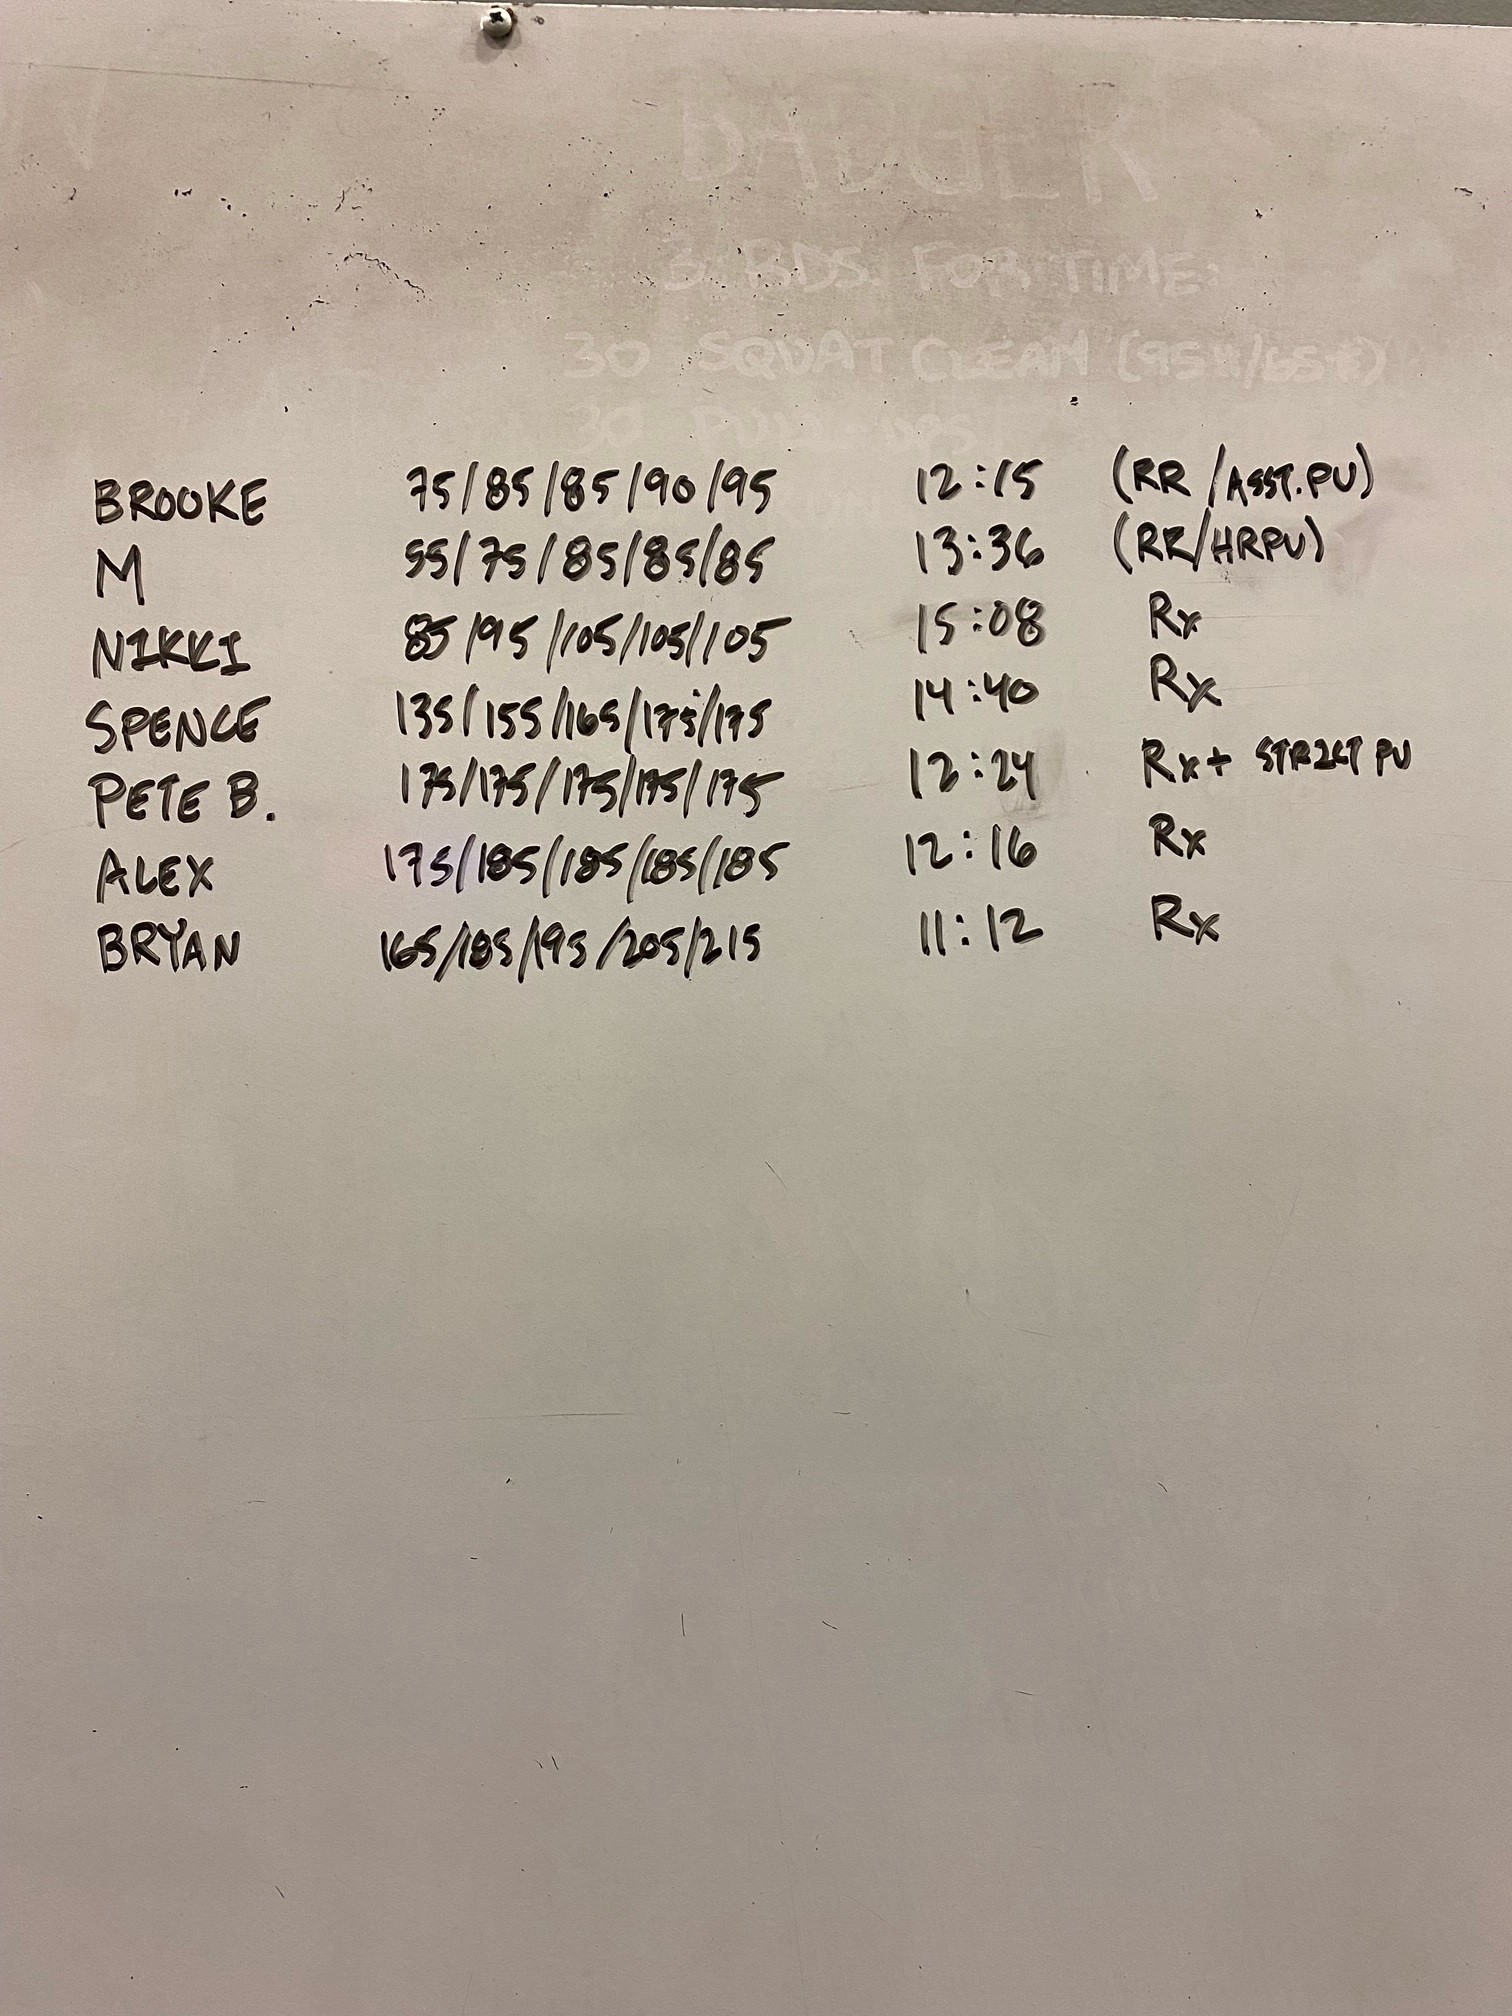 BADGER
3 RDS. FOR TIME:
30 SQUAT CLEAN (95#/65#)
30 PULL-UPS
BROOKE 75/85/85/90/95 12:15 (RR/ASST.PU)
M 55/75/85/85/85 13:36 (RR/HRPU)
NIKKI 85/95/105/105/105 15:08 Rx
SPENCE 135/155/165/175/175 14:40 Rx
PETE B. 175/175/175/175/175 12:24 Rx+ STRICT PU
ALEX 175/185/185/185/185 12:16 Rx
BRYAN 165/185/195/205/215 11:12 Rx